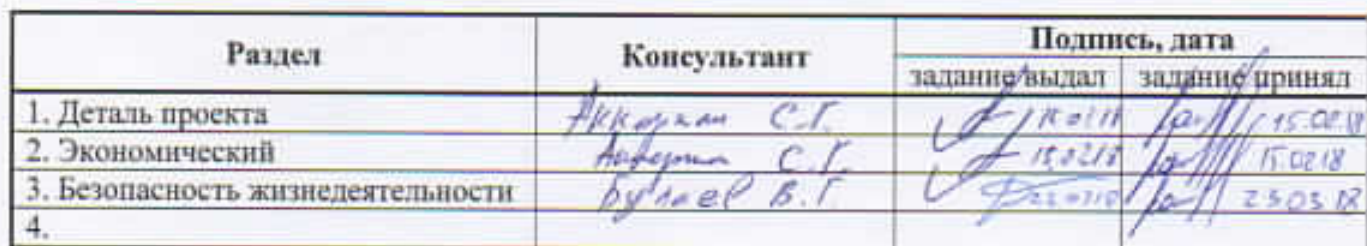 Раздел Консультант Подпись, дата
задание выдал задание принял
1. Деталь проекта С.Г. 15.02.18
2. Экономический С.Г. 15.02.18 15.02.18
3. Безопасность жизнедеятельности Булаев В.Г. 23.03.18
4.